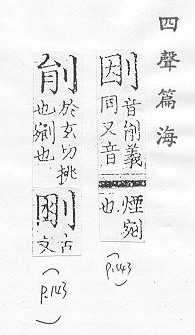 四聲篇海
音剈義
同又音
煙剜
也
(p.143)
剈
於玄切挑
也剜也
古
文
(p.143)